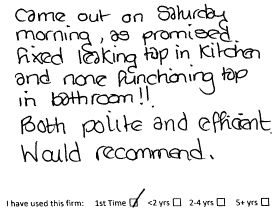 Came out on Saturday
morning, as promised.
Fixed leaking tap in kitchen
and none functioning tap
in bathroom!!
Both polite and efficient.
Would recommend.
I have used this firm: 1st Time ☑ <2 yrs ☐ 2-4 yrs ☐ 5+ yrs ☐